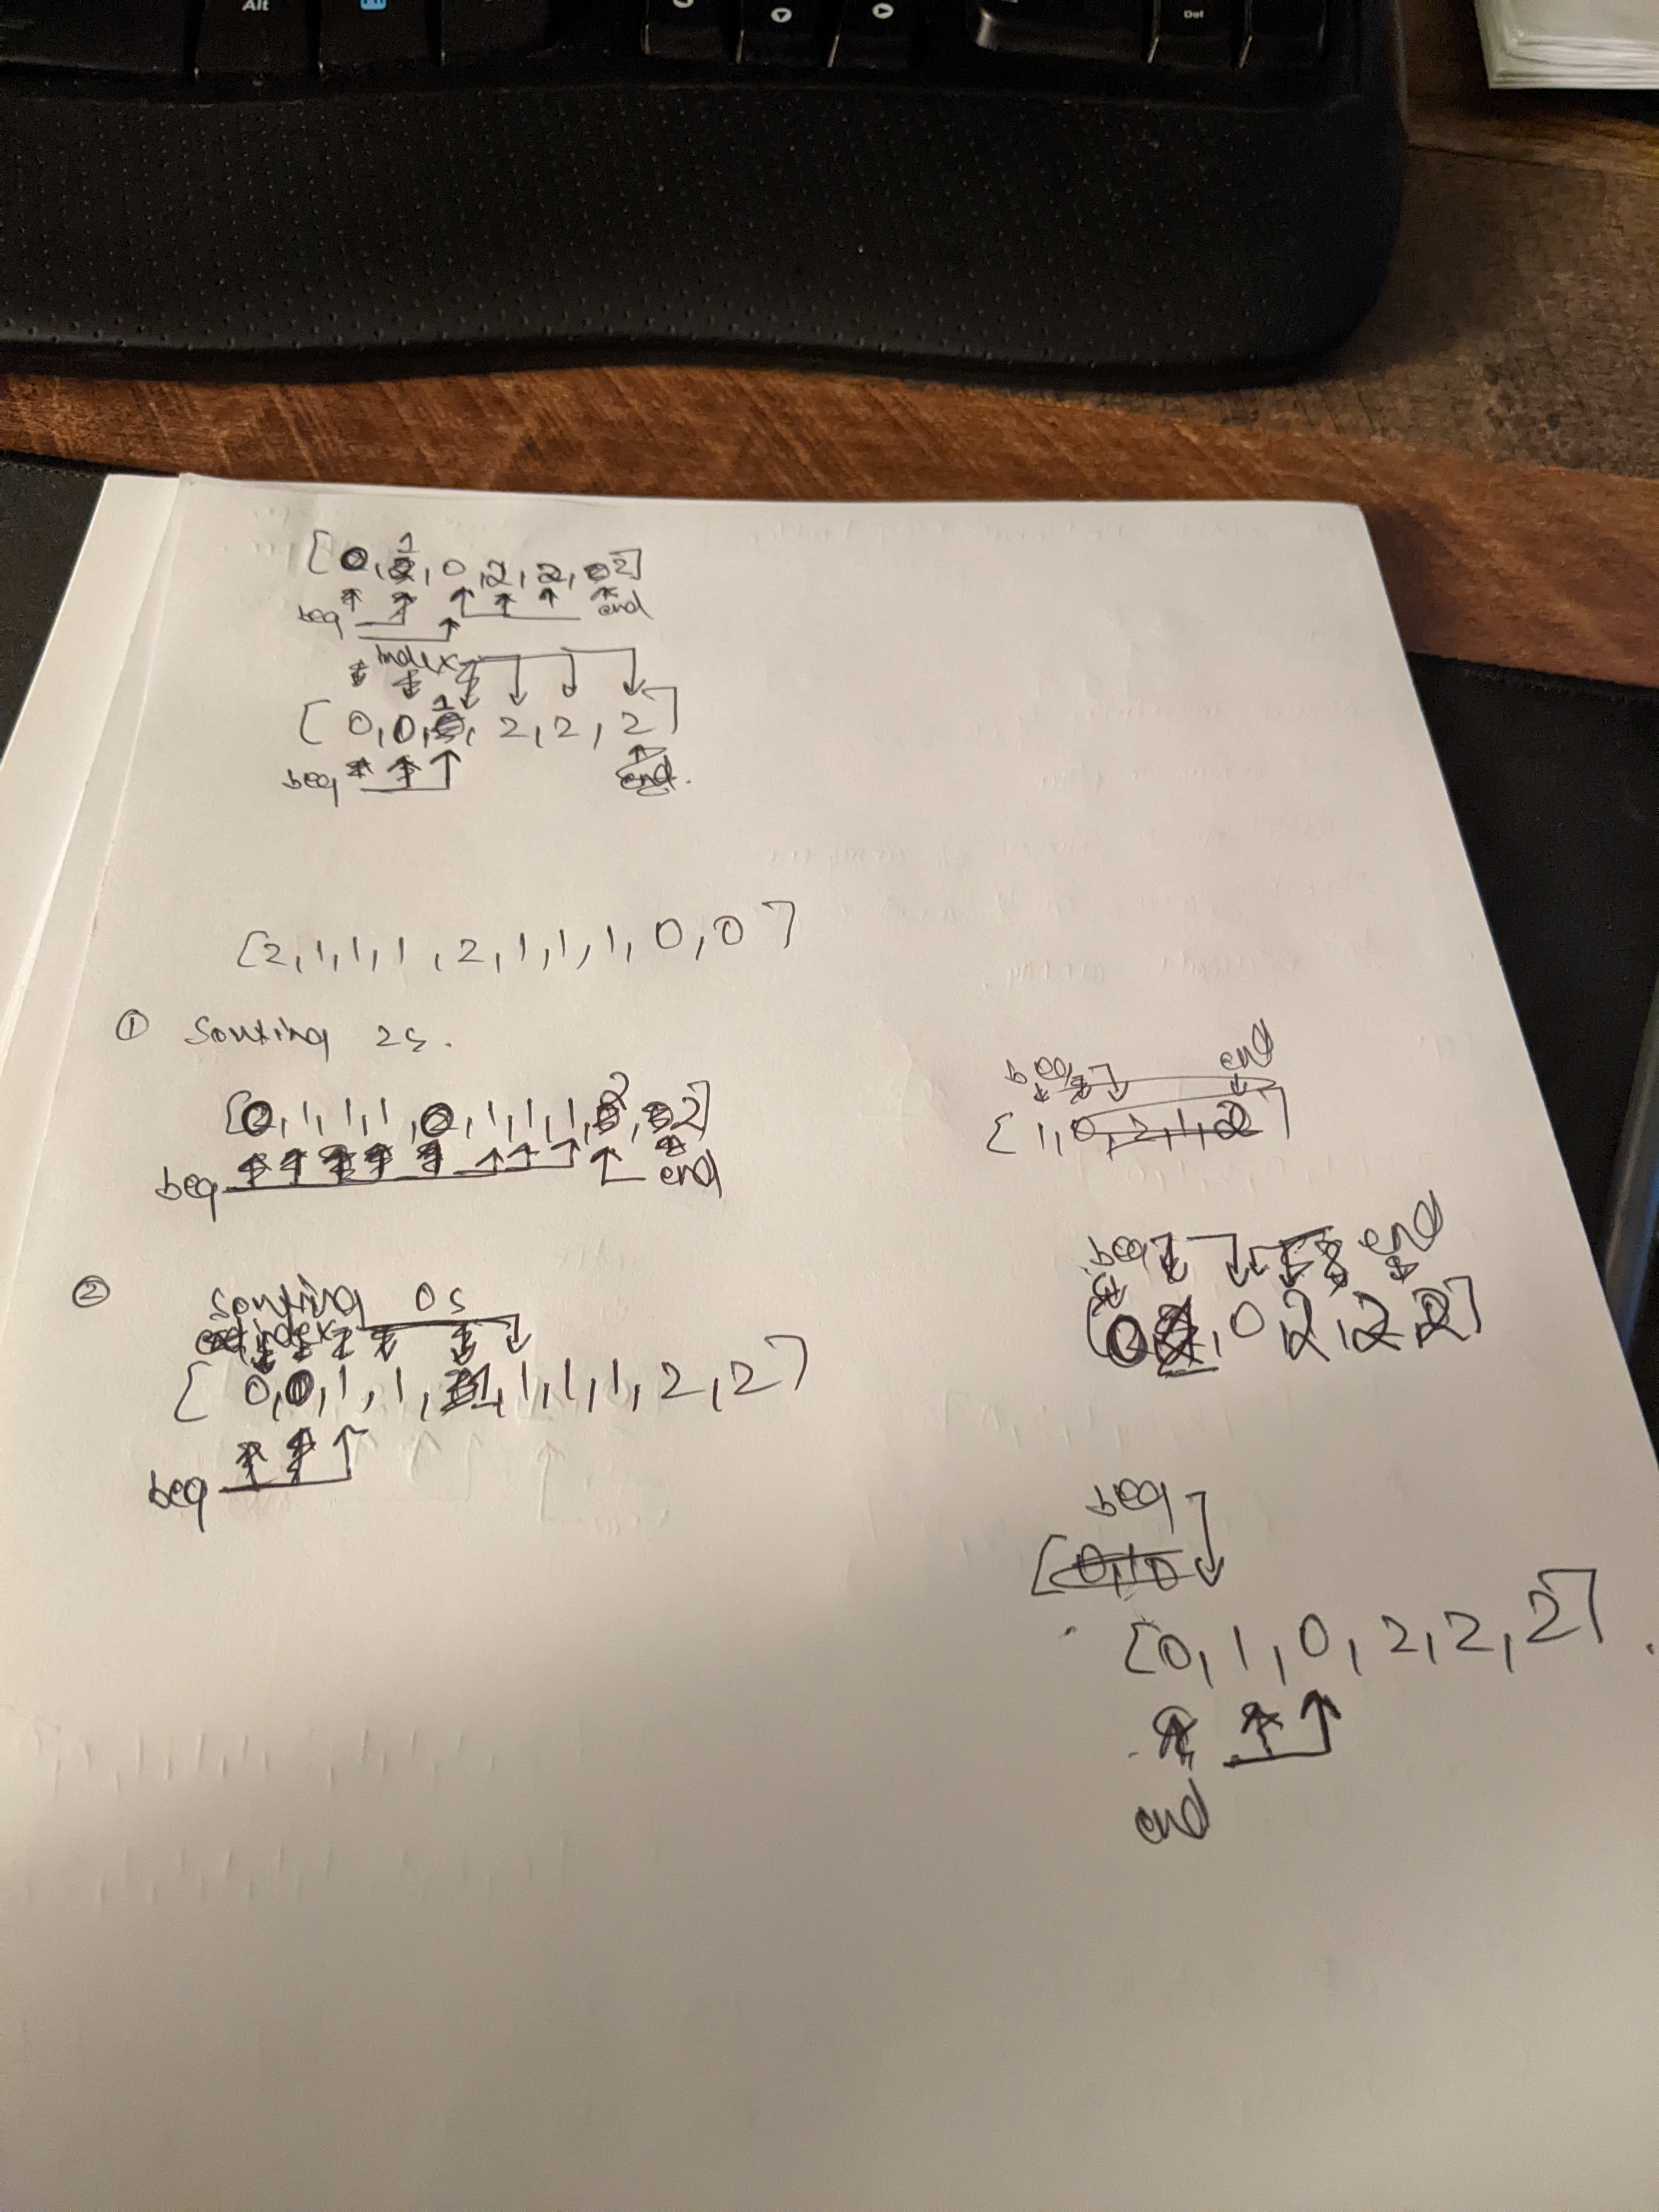 Alt
Del
[0, 1, 0, 2, 2, 2]
beg
end
index
[0, 0, 1, 2, 2, 2]
beg
end.
[2, 1, 1, 1, 2, 1, 1, 1, 0, 0]
① Sorting 2s.
[0, 1, 1, 1, 0, 1, 1, 1, 2, 2]
beg
end
② Sorting 0s
index
[0, 0, 1, 1, 1, 1, 1, 1, 2, 2]
beg
beg
end
[1, 0, 2, 1, 2]
beg
end
0, 2, 2, 2]
beg
[0, 1, 0, 2, 2, 2]
end